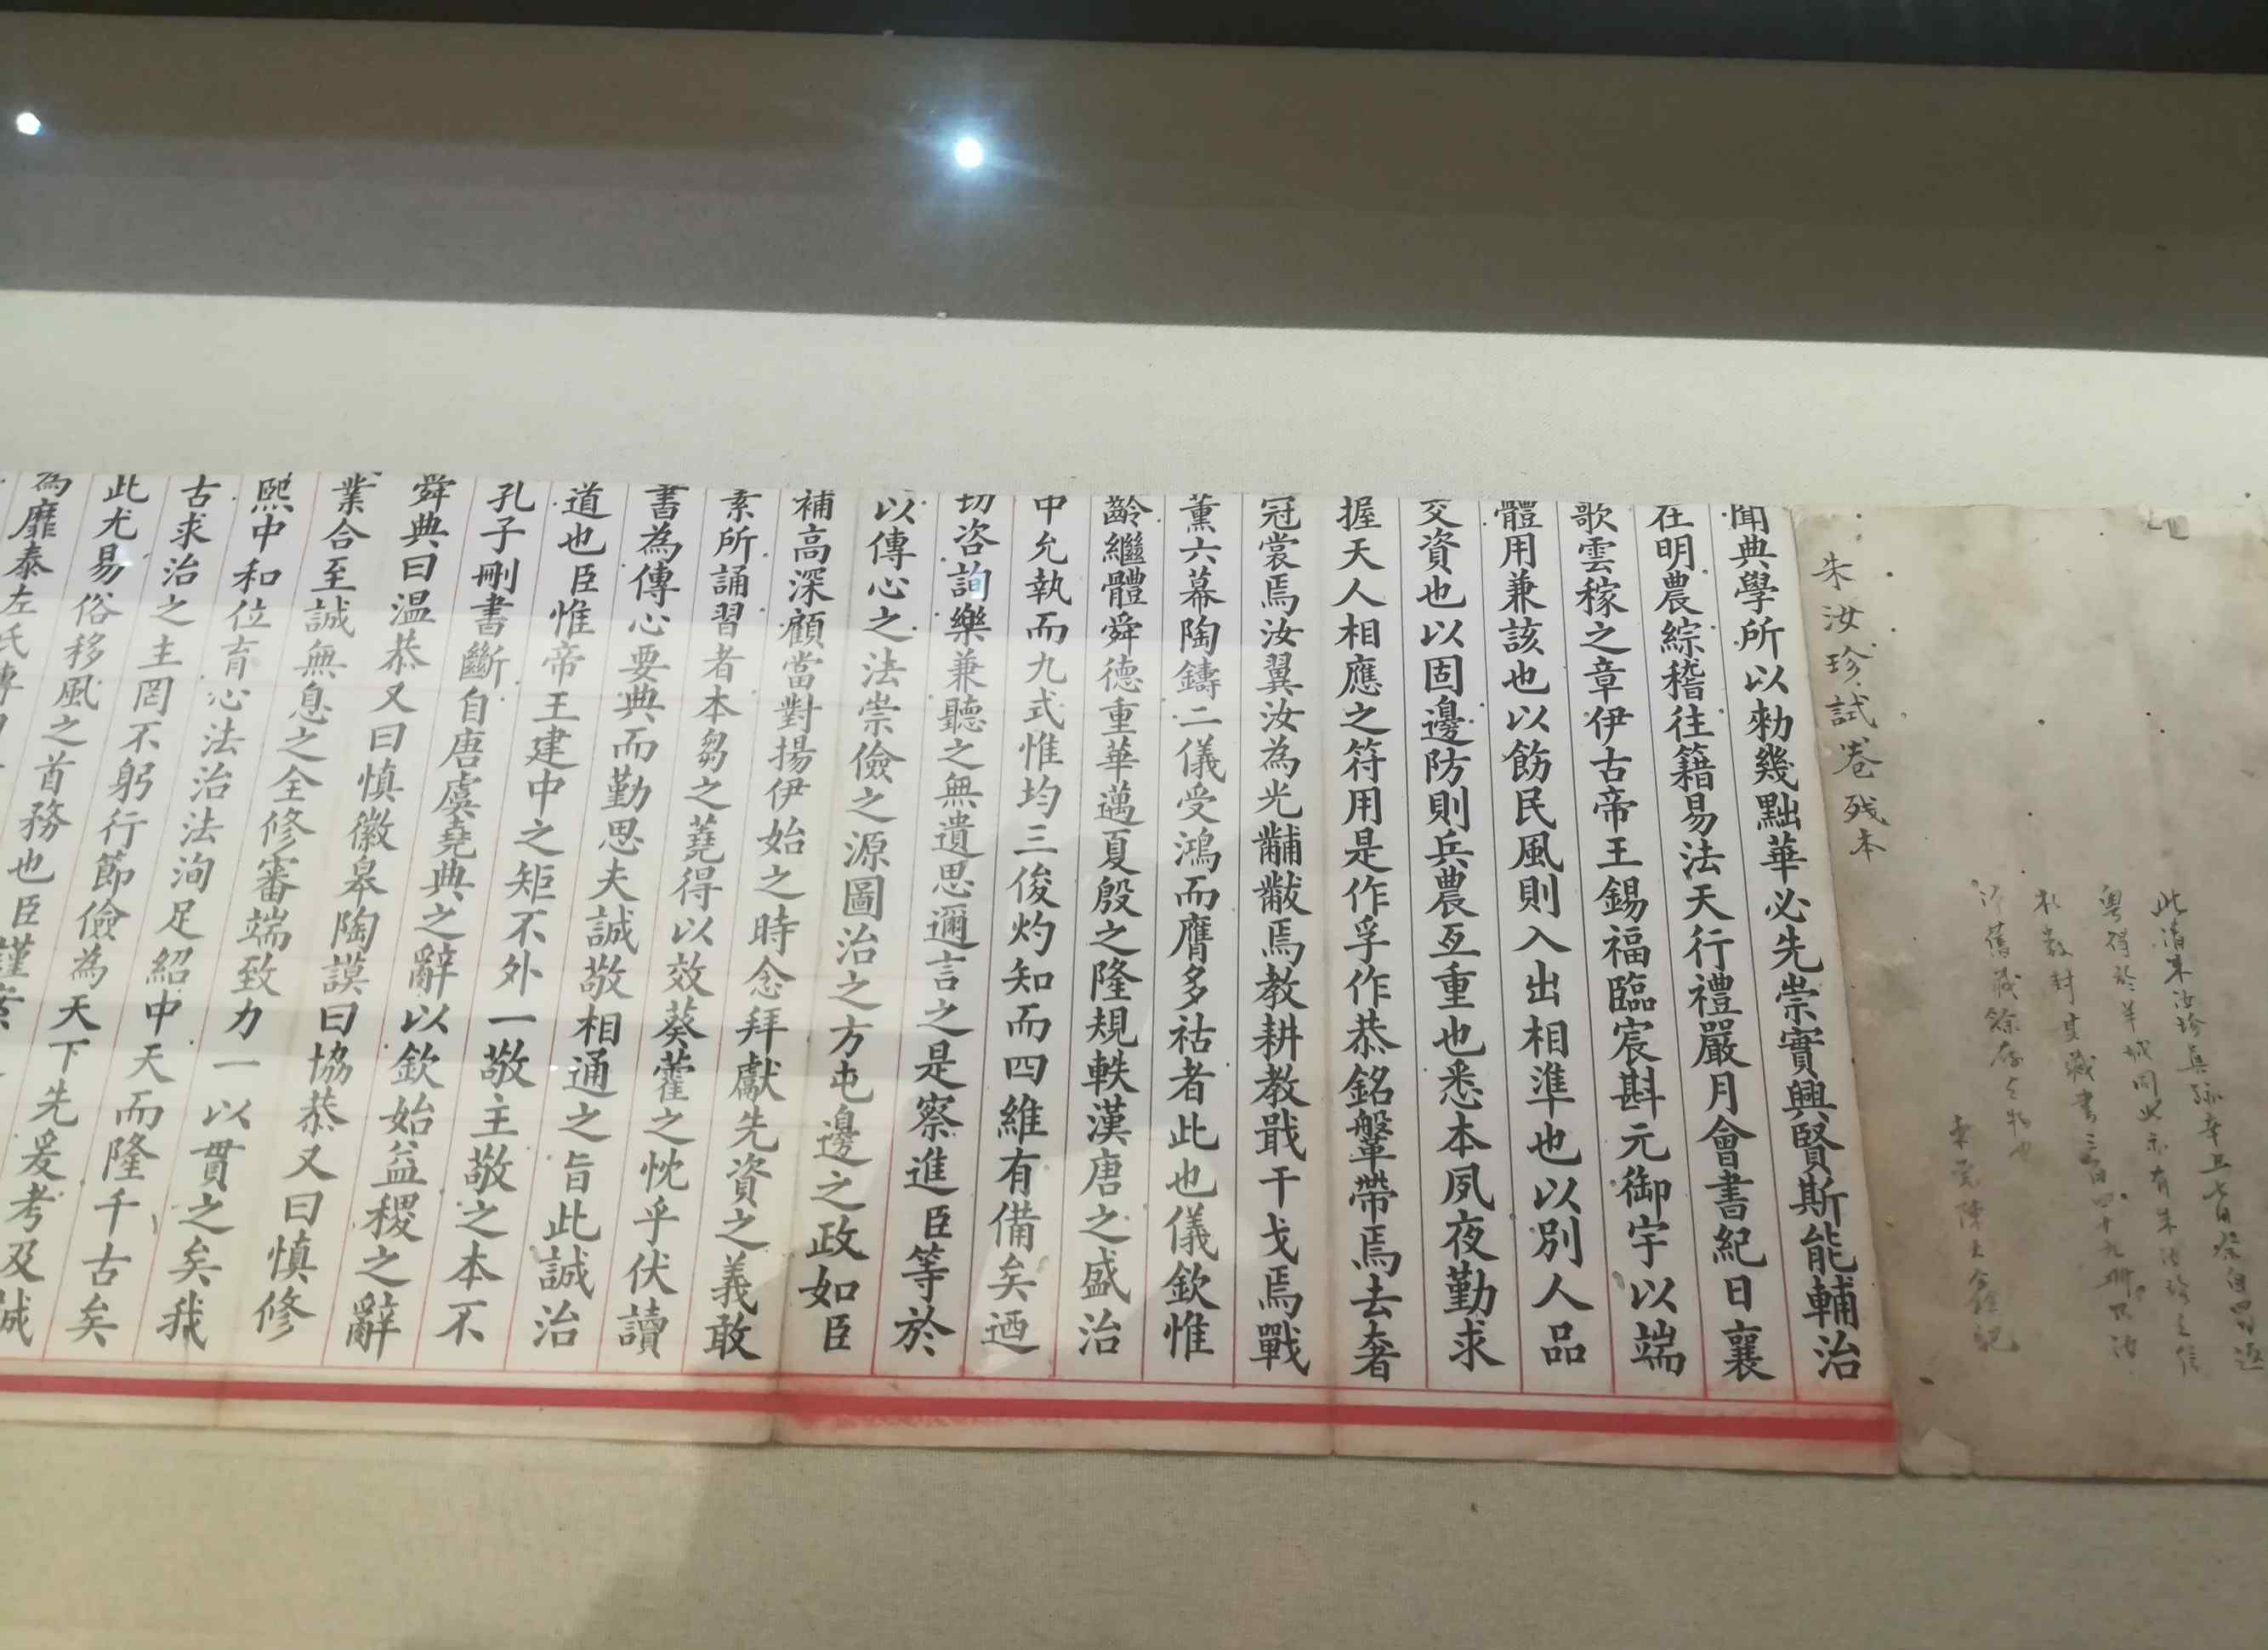 此清朱汝珍真跡辛丑七月
粤得於羊城同此亦有朱汝珍之信
札數封真藏書三百四十九冊
舊藏餘存之物也
朱汝珍試卷残本
聞典學所以勑幾黜華必先崇實興賢斯能輔治
在明農綜稽往籍易法天行禮嚴月會書紀日襄
歌雲稼之章伊古帝王錫福臨宸斟元御宇以端
體用兼該也以飭民風則入出相準也以別人品
交資也以固邊防則兵農亙重也悉本夙夜勤求
握天人相應之符用是作孚作恭銘鞶帶焉去奢
冠裳焉汝翼汝為光黼黻焉教耕教戰干戈焉戰
薰六幕陶鑄二儀受鴻而膺多祜者此也儀欽惟
齡繼體舜德重華邁夏殷之隆規軼漢唐之盛治
中允執而九式惟均三俊灼知而四維有備矣迺
切咨詢樂兼聽之無遺思邇言之是察進臣等於
以傳心之法崇儉之源圖治之方屯邊之政如臣
補高深顧當對揚伊始之時念拜獻先資之義敢
素所誦習者本芻之蕘得以效葵藿之忱乎伏讀
書為傳心要典而勤思夫誠敬相通之旨此誠治
道也臣惟帝王建中之矩不外一敬主敬之本不
孔子刪書斷自唐虞堯典之辭以欽始益稷之辭
舜典曰温恭又曰慎徽皋陶謨曰協恭又曰慎修
業合至誠無息之全修審端致力一以貫之矣我
熙中和位育心法治法洵足紹中天而隆千古矣
古求治之主罔不躬行節儉為天下先爰考及
此尤易俗移風之首務也臣謹案
為靡泰左氏傳